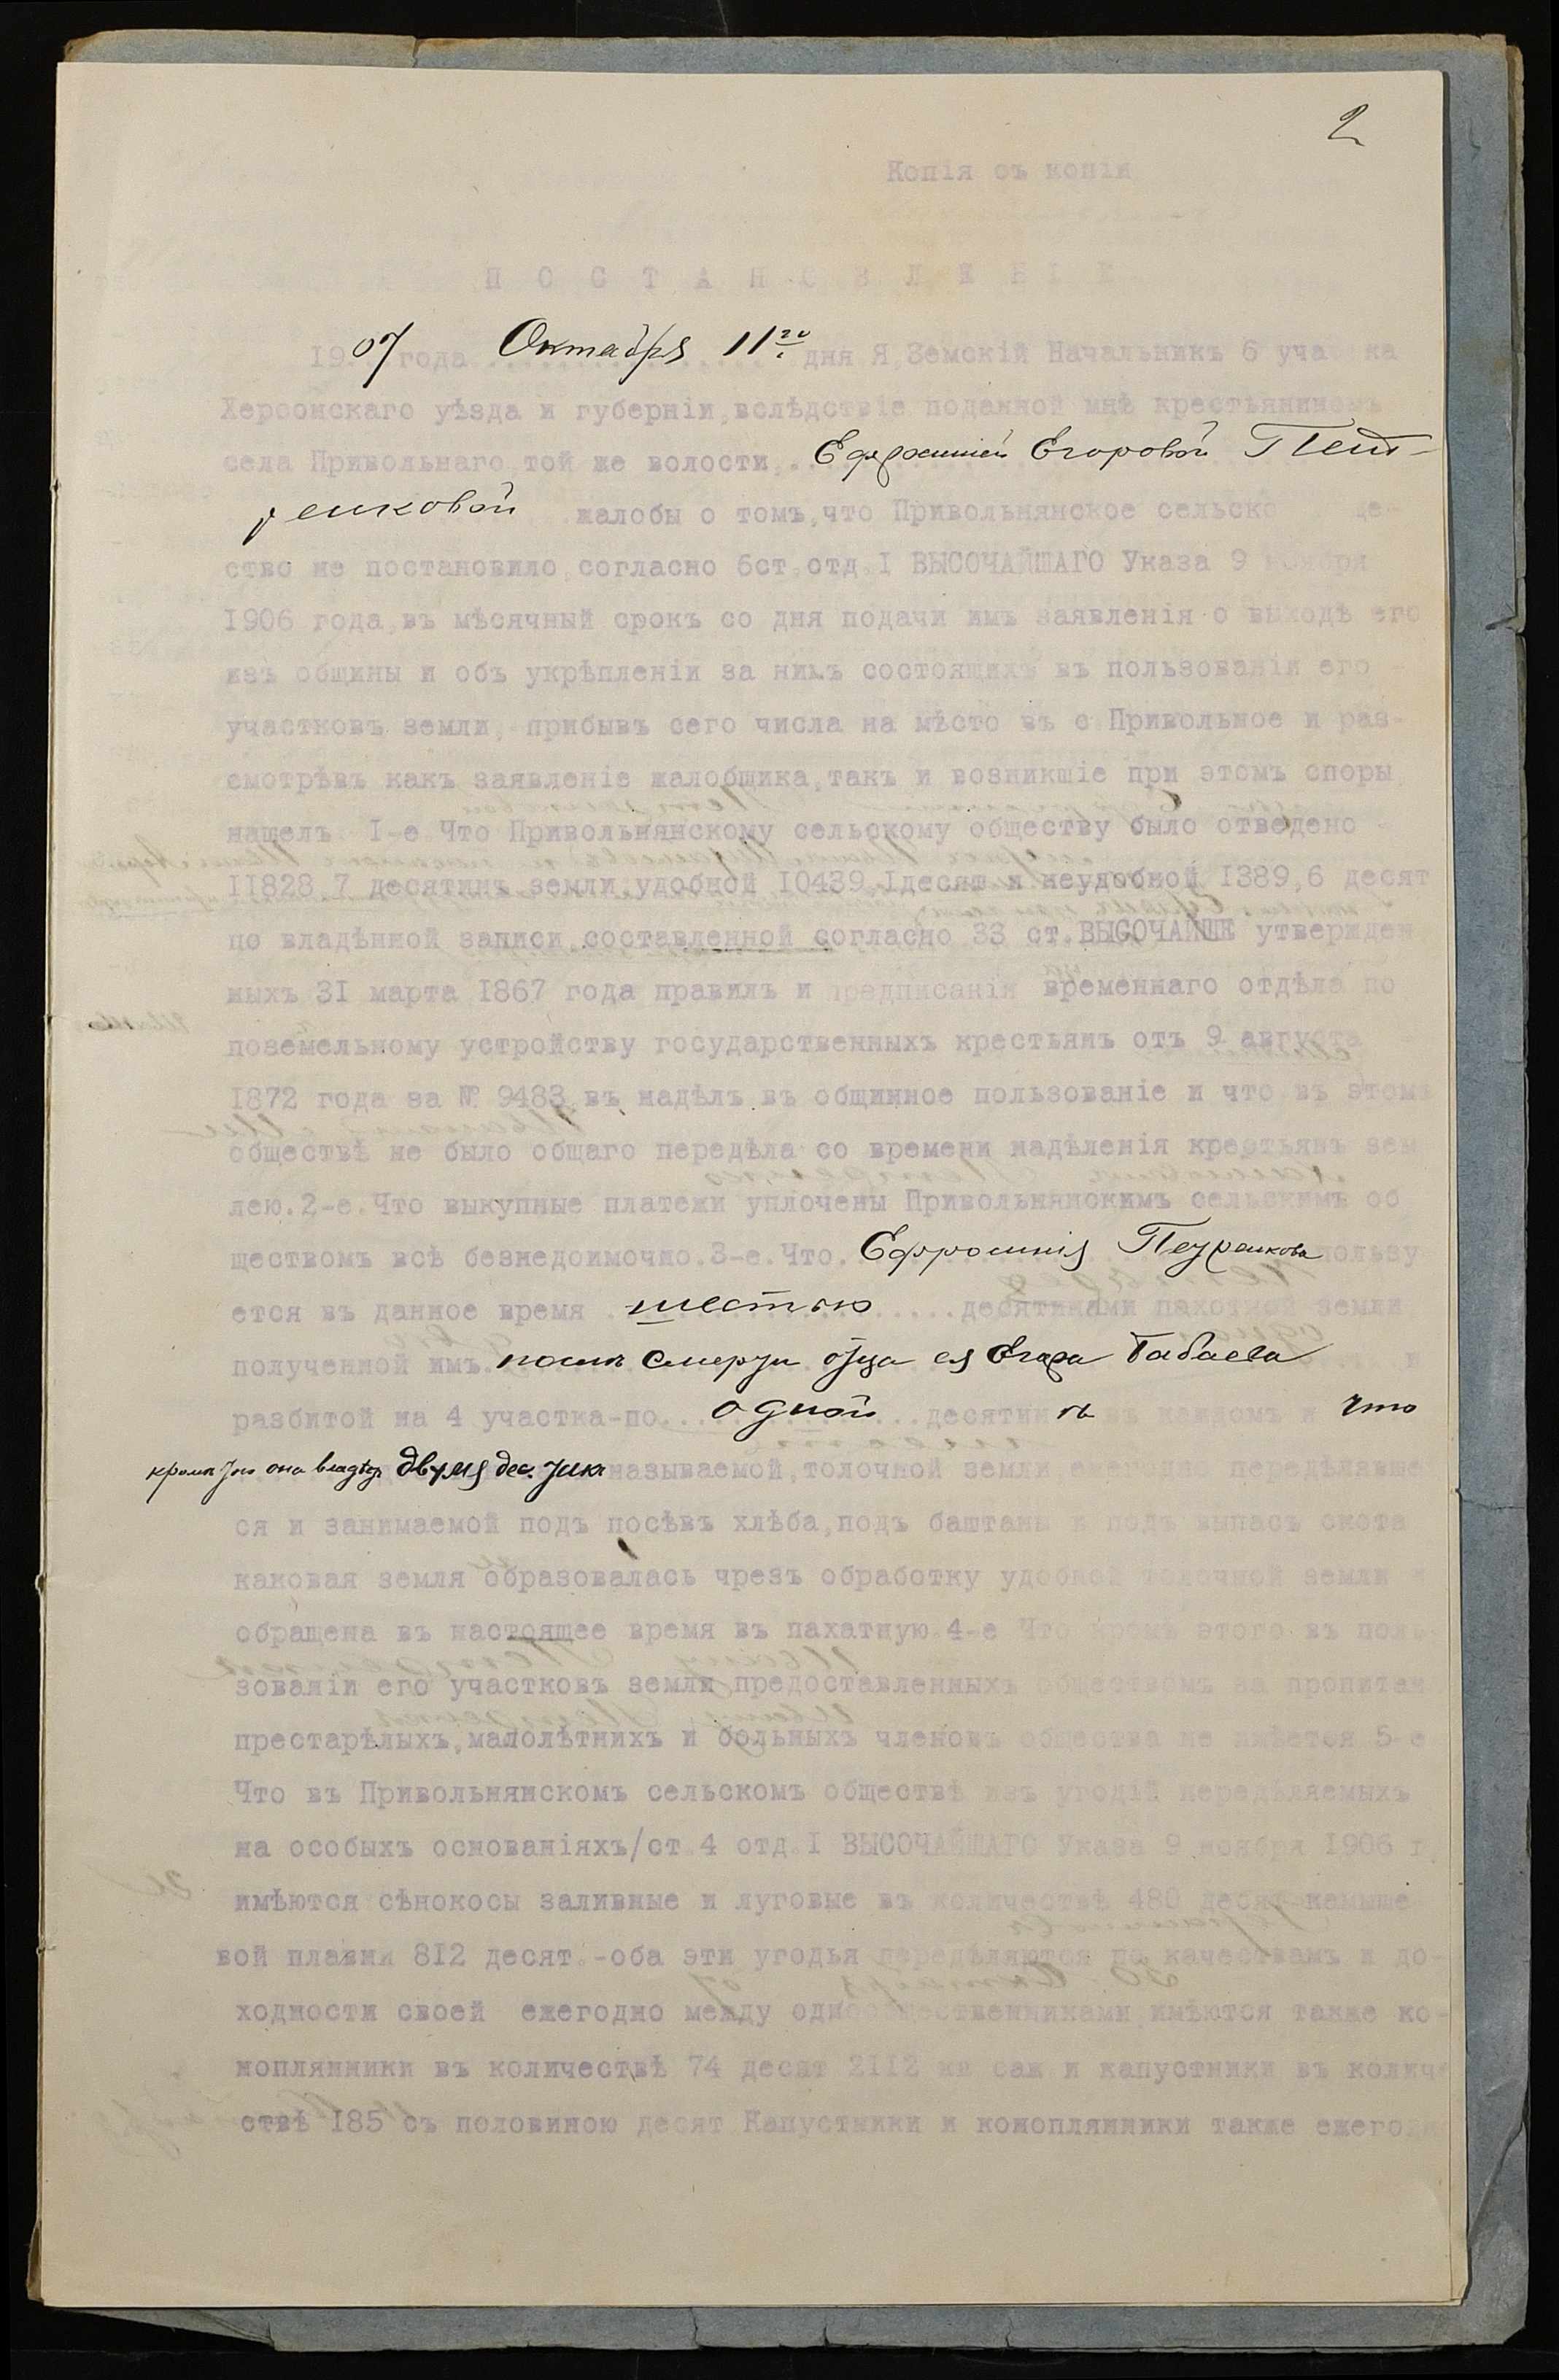 2
Копія съ копіи
ПОСТАНОВЛЕНІЕ
1907 года Октября 11го дня Я, Земскій Начальникъ 6 уча ка
Херсонскаго уѣзда и губерніи, вслѣдствіе поданной мнѣ крестьяниномъ
села Привольнаго, той же волости, Ефросиніей Егоровой Пет-
ренковой жалобы о томъ, что Привольнянское сельско ще-
ство не постановило, согласно 6ст. отд. I ВЫСОЧАЙШАГО Указа 9 ноября
1906 года, въ мѣсячный срокъ со дня подачи имъ заявленія о выходѣ его
изъ общины и объ укрѣпленіи за нимъ состоящихъ въ пользованіи его
участковъ земли, прибывъ сего числа на мѣсто въ с. Привольное и раз-
смотрѣвъ какъ заявленіе жалобщика, такъ и возникшіе при этомъ споры,
нашелъ: I-е Что Привольнянскому сельскому обществу было отведено
11828,7 десятинъ земли, удобной 10439,1десят и неудобной 1389,6 десят
по владѣнной записи, составленной согласно 33 ст. ВЫСОЧАЙШЕ утвержден
ныхъ 31 марта 1867 года правилъ и предписанія временнаго отдѣла по
поземельному устройству государственныхъ крестьянъ отъ 9 августа
1872 года за № 9483, въ надѣлъ въ общинное пользованіе и что въ этомъ
обществѣ не было общаго передѣла со времени надѣленія крестьянъ зем
лею. 2-е. Что выкупные платежи уплочены Привольнянскимъ сельскимъ об
ществомъ всѣ безнедоимочно. 3-е. Что Ефросинія Петренкова пользу
ется въ данное время шестью десятинами пахотной земли
полученной имъ послѣ смерти отца ея Егора Бабаева и
разбитой на 4 участка-по одной десятинѣ въ каждомъ и что
кромѣ того она владѣетъ двумя дес. такъ называемой, толочной земли передѣлявше
ся и занимаемой подъ посѣвъ хлѣба, подъ баштаны и подъ выпасъ скота
каковая земля образовалась чрезъ обработку удобной толочной земли и
обращена въ настоящее время въ пахатную. 4-е Что кромѣ этого въ поль
зованіи его участковъ земли предоставленныхъ обществомъ за пропитан
престарѣлыхъ, малолѣтнихъ и больныхъ членовъ общества не имѣется 5-е
Что въ Привольнянскомъ сельскомъ обществѣ изъ угодій передѣляемыхъ
на особыхъ основаніяхъ/ст. 4 отд. I ВЫСОЧАЙШАГО Указа 9 ноября 1906 г.
имѣются сѣнокосы заливные и луговые въ количествѣ 480 десят камыше
вой плавни 812 десят.-оба эти угодья передѣляются по качествамъ и до-
ходности своей ежегодно между однообщественниками, имѣются также ко-
ноплянники въ количествѣ 74 десят 2112 кв саж и капустники въ количе
ствѣ 185 съ половиною десят Капустники и коноплянники также ежегодн